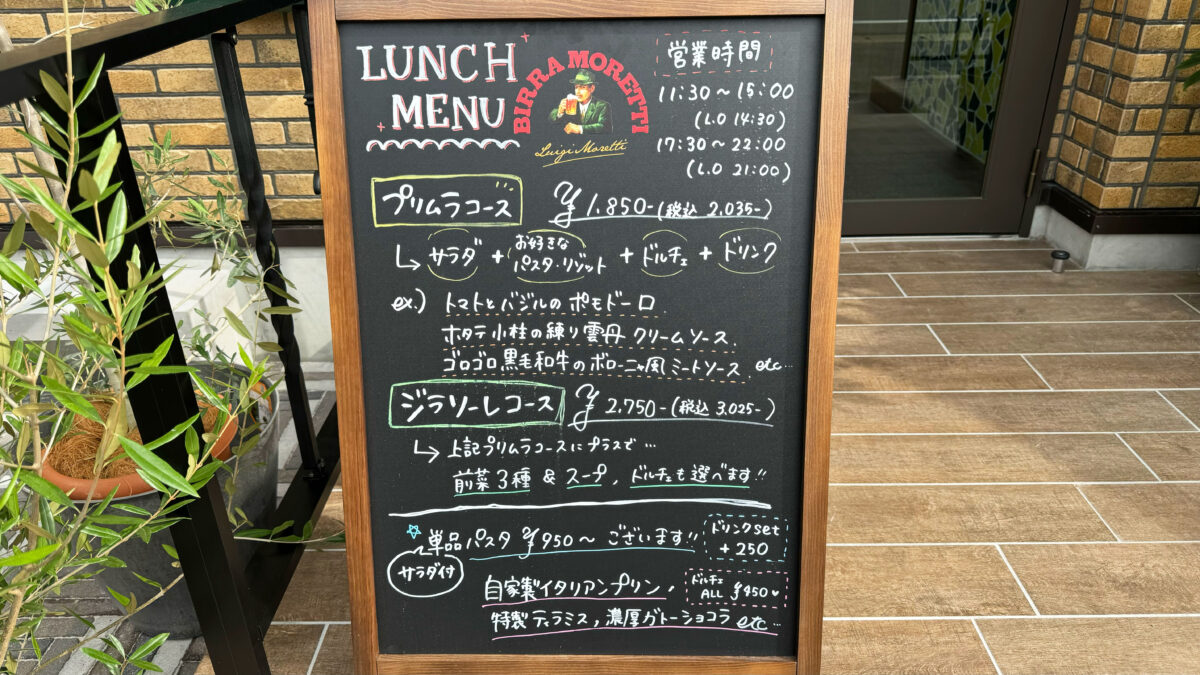 LUNCH
MENU
BIRRA MORETTI
Luigi Moretti
営業時間
11:30～15:00
(L.O 14:30)
17:30～22:00
(L.O 21:00)
プリムラコース ¥1.850-(税込 2.035-)
サラダ + お好きな パスタ・リゾット + ドルチェ + ドリンク
ex.) トマトとバジルのポモドーロ
ホタテ小柱の練り雲丹クリームソース
ゴロゴロ黒毛和牛のボローニャ風ミートソース etc…
ジラソーレコース ¥2.750-(税込 3.025-)
上記プリムラコースにプラスで…
前菜3種 & スープ, ドルチェも選べます!!
単品パスタ ¥950～ ございます!!
サラダ付
ドリンクset
+250
自家製イタリアンプリン,
ドルチェ
ALL ¥450
特製ティラミス, 濃厚ガトーショコラ etc…